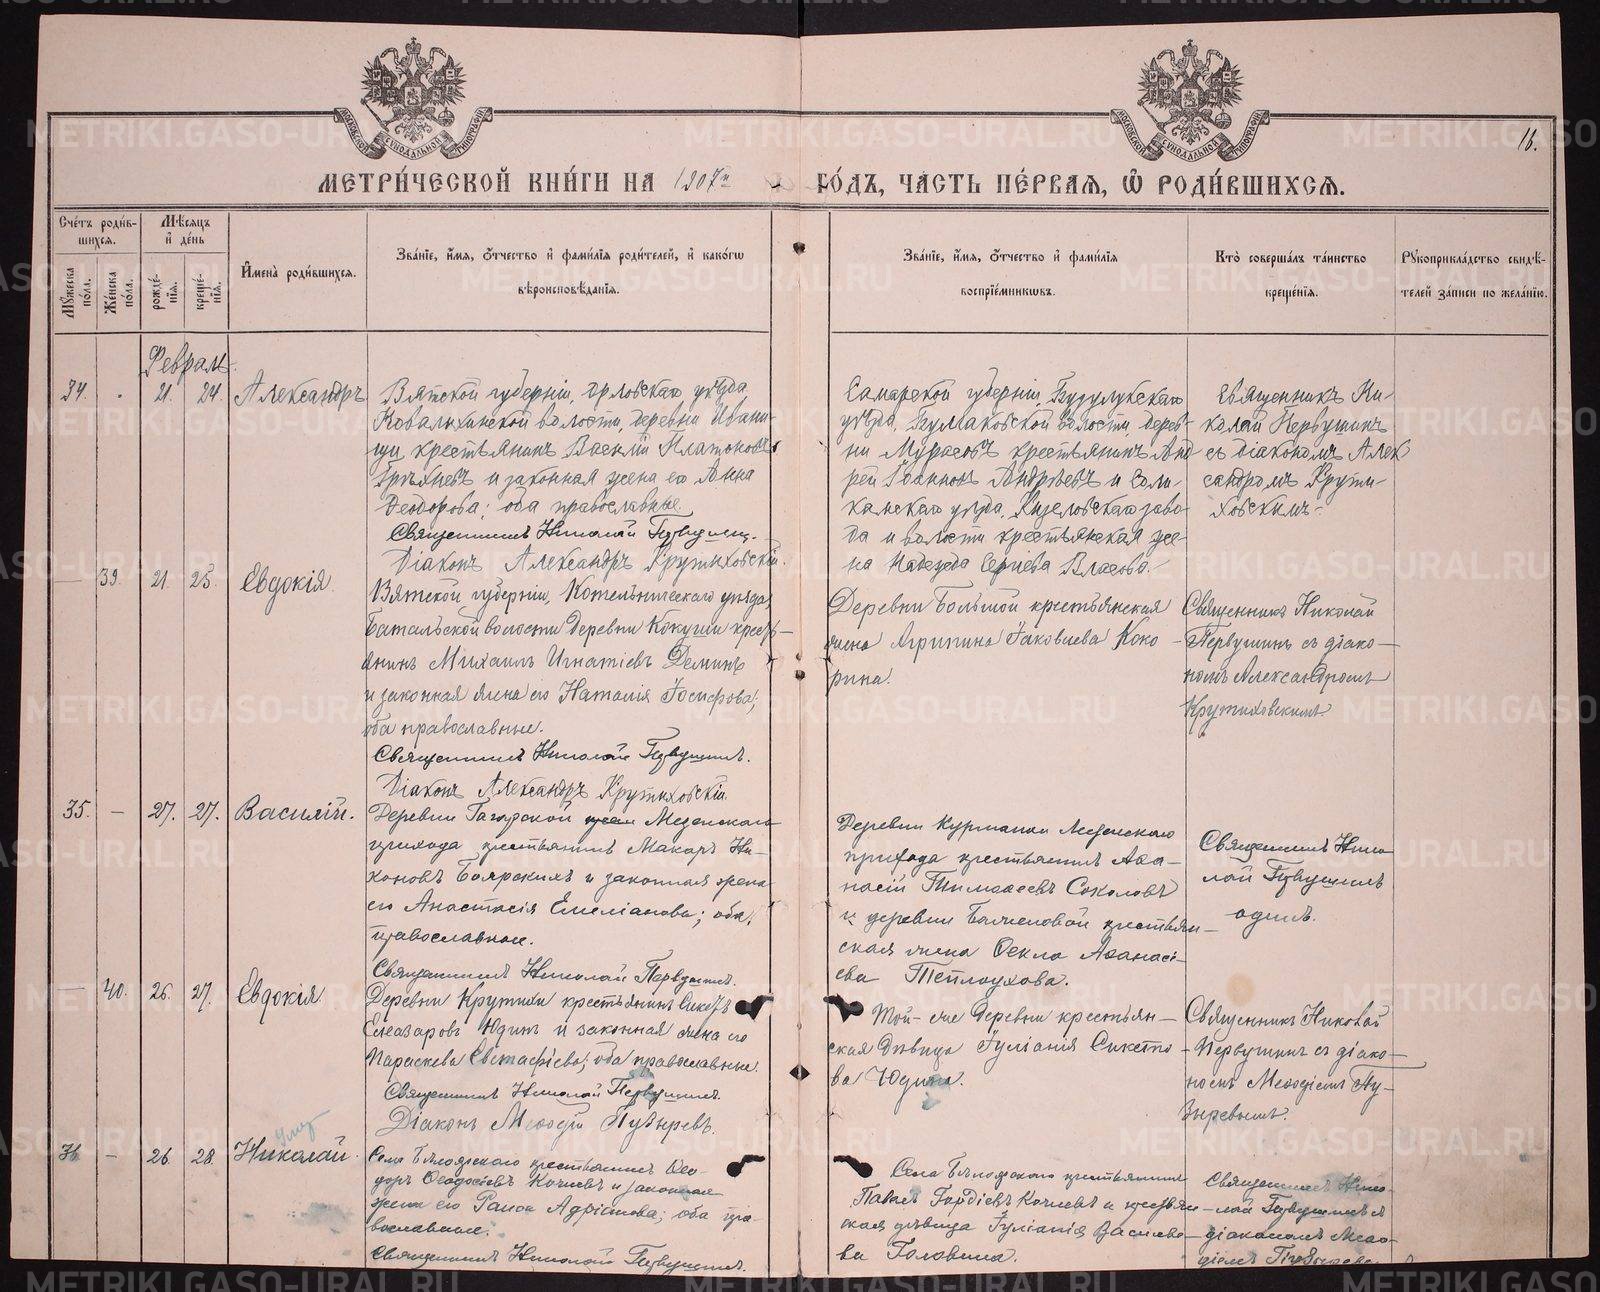 МЕТРИ́ЧЕСКОЙ КНИ́ГИ НА 1907й ГО́ДЪ, ЧА́СТЬ ПЕ́РВАѦ, Ѡ҆ РОДИ́ВШИХСѦ.
16.
Сче́тъ роди́в-
шихсѧ.
Мꙋ́жеска по́ла.
Же́нска по́ла.
Мѣ́сѧцъ и҆ де́нь
рожде́-
нїѧ.
креще́-
нїѧ.
И҆мена̀ роди́вшихсѧ.
Зва́нїе, и҆́мѧ, ѻ҆́тчество и҆ фами́лїѧ роди́телей, и҆ како́гѡ
вѣроисповѣ́данїѧ.
Зва́нїе, и҆́мѧ, ѻ҆́тчество и҆ фами́лїѧ
воспрїе́мникѡвъ.
Кто̀ соверша́лъ та́инство
креще́нїѧ.
Рꙋкоприкла́дство свидѣ́-
телей за́писи по жела́нїю.
Февраль
34. 21. 24. Александръ
Вятской губерніи, Орловскаго уѣзда
Ковалихинской волости, деревни Ивани-
щи, крестьянинъ Василій Платоновъ
и законная жена его Анна
Ѳеодорова; оба православные.
Священникъ Николай Первушинъ.
Діаконъ Александръ Крутиховскій.
Самарской губерніи, Бузулукскаго
уѣзда, волости, дерев-
ни крестьянинъ Анд
рей Іоанновъ Андреевъ и Соли-
камскаго уѣзда, Кизеловскаго заво-
да и волости крестьянская же-
на Надежда Сергіева Власова.
Священникъ Ни-
колай Первушинъ
съ діакономъ Алек
сандромъ Крути-
ховскимъ.
— 39. 21. 25. Евдокія
Вятской губерніи, Котельническаго уѣзда,
волости деревни Кокуши кресть-
янинъ Михаилъ Игнатіевъ Деминъ
и законная жена его Наталія Іосифова;
оба православные.
Священникъ Николай Первушинъ.
Діаконъ Александръ Крутиховскій
Деревни Большой крестьянская
жена Агрипина Іаковлева Коко
рина.
Священникъ Николай
Первушинъ съ діако-
номъ Александромъ
Крутиховскимъ
35. — 27. 27. Василій.
Деревни Гагарской Мезенскаго
прихода крестьянинъ Макаръ Ни-
коновъ Боярскихъ и законная жена
его Анастасія Емеліанова; оба
православные.
Священникъ Николай Первушинъ.
Деревни Курманки Мезенскаго
прихода крестьянинъ Аѳа-
насій Тимоѳеевъ Соколовъ
и деревни крестьян-
ская жена Ѳекла Аѳанасі-
ева Теплоухова.
Священникъ Нико
лай Первушинъ
одинъ.
— 40. 26. 27. Евдокія
Деревни Крутихи крестьянинъ
Елеазаровъ Юдинъ и законная жена его
Параскева Евстафіева; оба православные.
Священникъ Николай Первушинъ.
Діаконъ Меѳодій Пузыревъ.
Той-же деревни крестьян-
ская дѣвица Іуліанія
ва Юдина.
Священникъ Николай
Первушинъ съ діако-
номъ Меѳодіемъ Пу-
зыревымъ.
36 — 26. 28. Николай.
Села Бѣлоярскаго крестьянинъ Ѳео-
доръ Ѳеодосіевъ Кочневъ и законная
жена его Раиса Адріанова; оба пра-
вославные.
Священникъ Николай Первушинъ.
Села Бѣлоярскаго крестьянинъ
Павелъ Гордіевъ Кочневъ и крестьян-
ская дѣвица Іуліанія Василіе-
ва Головина.
Священникъ Нико-
лай Первушинъ съ
діакономъ Меѳо-
діемъ
METRIKI.GASO-URAL.RU